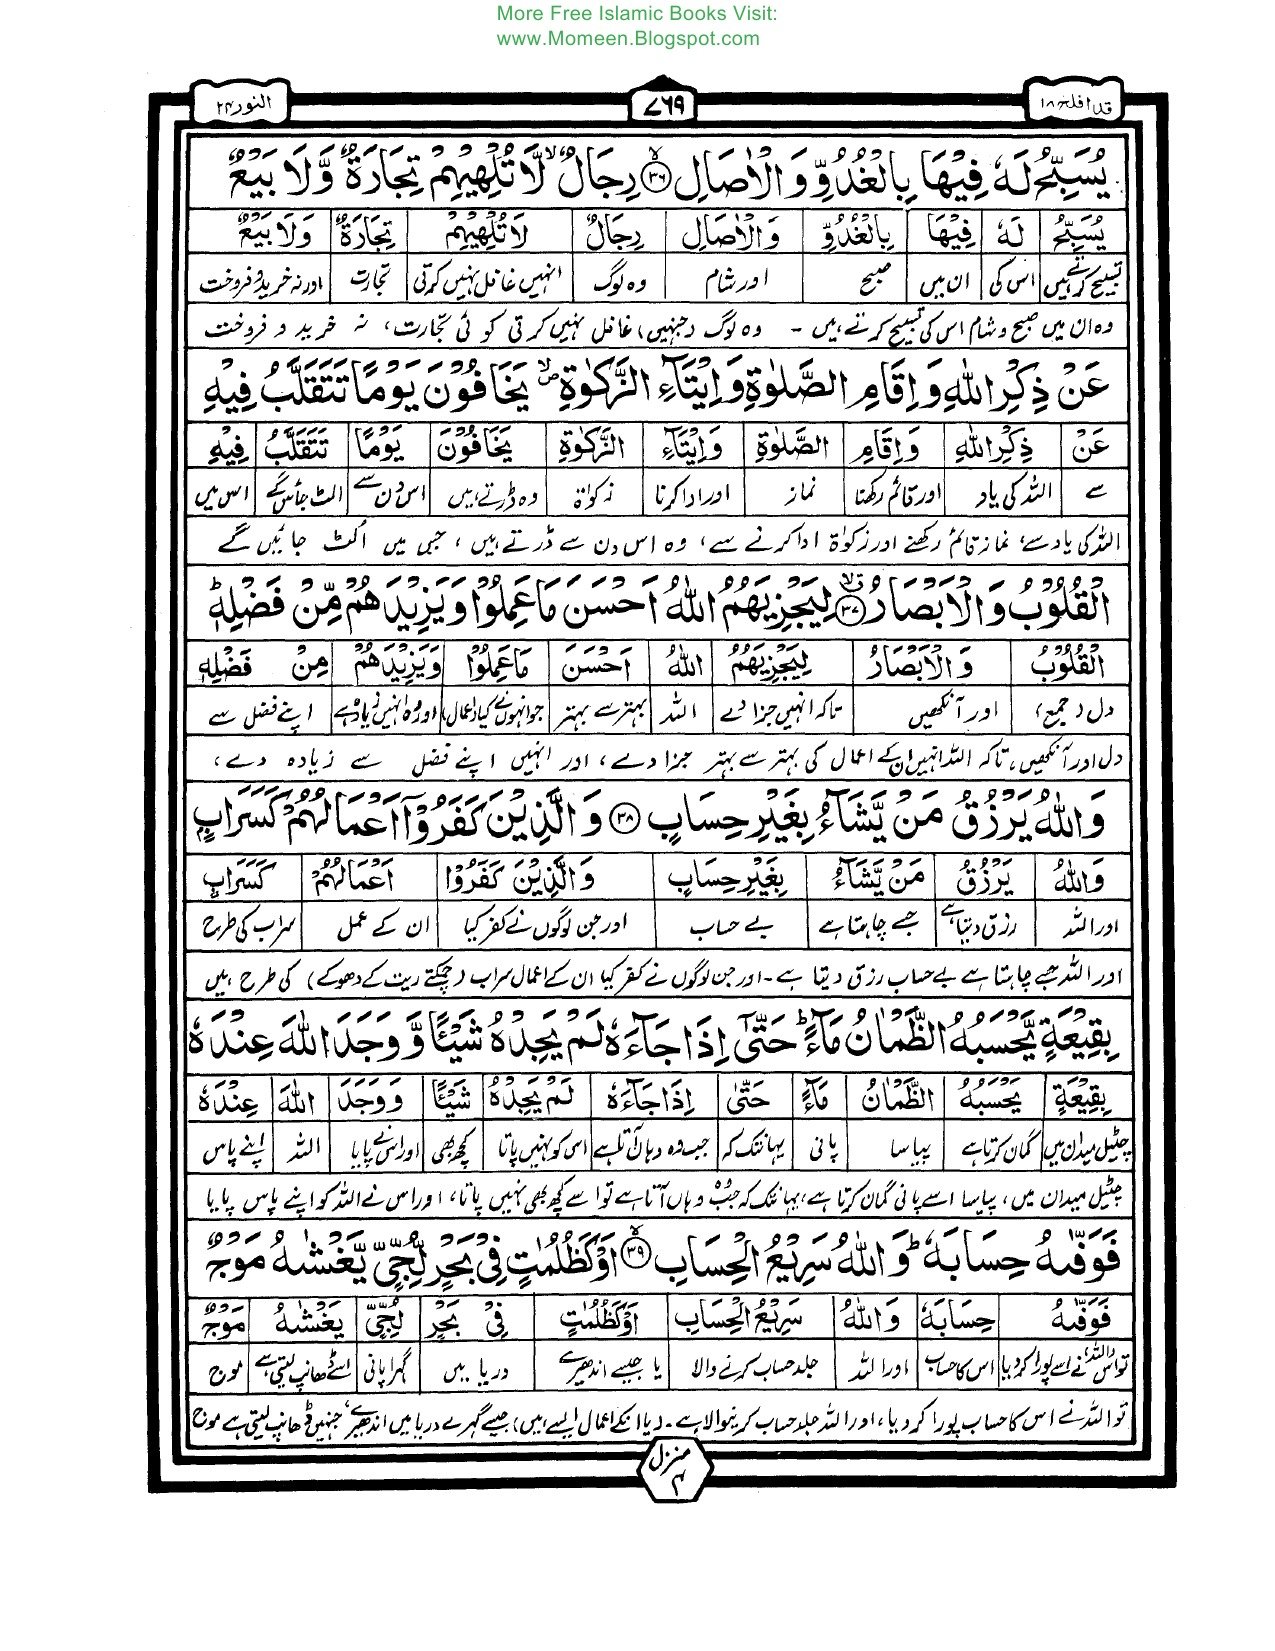 More Free Islamic Books Visit:
www.Momeen.Blogspot.com
قد افلح ۱۸
۷۶۹
النور ۲۴
يُسَبِّحُ لَهٗ فِيْهَا بِالْغُدُوِّ وَالْاٰصَالِ ۳۶ رِجَالٌ لَّا تُلْهِيْهِمْ تِجَارَةٌ وَّلَا بَيْعٌ
يُسَبِّحُ لَهٗ فِيْهَا بِالْغُدُوِّ وَالْاٰصَالِ رِجَالٌ لَا تُلْهِيْهِمْ تِجَارَةٌ وَلَا بَيْعٌ
تسبیح کرتے ہیں اس کی ان میں صبح اور شام وہ لوگ انہیں غافل نہیں کرتی تجارت اور نہ خرید و فروخت
وہ ان میں صبح و شام اس کی تسبیح کرتے ہیں - وہ لوگ (جنہیں) غافل نہیں کرتی کوئی تجارت، نہ خرید و فروخت
عَنْ ذِكْرِ اللّٰهِ وَاِقَامِ الصَّلٰوةِ وَاِيْتَآءِ الزَّكٰوةِ يَخَافُوْنَ يَوْمًا تَتَقَلَّبُ فِيْهِ
عَنْ ذِكْرِ اللّٰهِ وَاِقَامِ الصَّلٰوةِ وَاِيْتَآءِ الزَّكٰوةِ يَخَافُوْنَ يَوْمًا تَتَقَلَّبُ فِيْهِ
سے اللہ کی یاد اور قائم رکھنا نماز اور ادا کرنا زکوٰۃ وہ ڈرتے ہیں اس دن سے الٹ جائیں گے اس میں
اللہ کی یاد سے، نماز قائم رکھنے اور زکوٰۃ ادا کرنے سے، وہ اس دن سے ڈرتے ہیں، جس میں اُلٹ جائیں گے
الْقُلُوْبُ وَالْاَبْصَارُ ۳۷ لِيَجْزِيَهُمُ اللّٰهُ اَحْسَنَ مَا عَمِلُوْا وَيَزِيْدَهُمْ مِّنْ فَضْلِهٖ
الْقُلُوْبُ وَالْاَبْصَارُ لِيَجْزِيَهُمُ اللّٰهُ اَحْسَنَ مَا عَمِلُوْا وَيَزِيْدَهُمْ مِنْ فَضْلِهٖ
دل (جمع) اور آنکھیں تاکہ انہیں جزا دے اللہ بہتر سے بہتر جو انہوں نے کیا (اعمال) اور وہ انہیں زیادہ دے اپنے فضل سے
دل اور آنکھیں، تاکہ اللہ انہیں ان کے اعمال کی بہتر سے بہتر جزا دے، اور انہیں اپنے فضل سے زیادہ دے،
وَاللّٰهُ يَرْزُقُ مَنْ يَّشَآءُ بِغَيْرِ حِسَابٍ ۳۸ وَالَّذِيْنَ كَفَرُوْٓا اَعْمَالُهُمْ كَسَرَابٍ
وَاللّٰهُ يَرْزُقُ مَنْ يَّشَآءُ بِغَيْرِ حِسَابٍ وَالَّذِيْنَ كَفَرُوْا اَعْمَالُهُمْ كَسَرَابٍ
اور اللہ رزق دیتا ہے جسے چاہتا ہے بے حساب اور جن لوگوں نے کفر کیا ان کے عمل سراب کی طرح
اور اللہ جسے چاہتا ہے بے حساب رزق دیتا ہے - اور جن لوگوں نے کفر کیا ان کے اعمال سراب (چمکتے ریت کے دھوکے) کی طرح ہیں
بِقِيْعَةٍ يَّحْسَبُهُ الظَّمْاٰنُ مَآءً حَتّٰٓى اِذَا جَآءَهٗ لَمْ يَجِدْهُ شَيْـًٔا وَّوَجَدَ اللّٰهَ عِنْدَهٗ
بِقِيْعَةٍ يَحْسَبُهُ الظَّمْاٰنُ مَآءً حَتّٰى اِذَا جَآءَهٗ لَمْ يَجِدْهُ شَيْـًٔا وَوَجَدَ اللّٰهَ عِنْدَهٗ
چٹیل میدان میں گمان کرتا ہے پیاسا پانی یہانتک کہ جب وہ وہاں آتا ہے اس کو نہیں پاتا کچھ بھی اور اس نے پایا اللہ اپنے پاس
چٹیل میدان میں، پیاسا اسے پانی گمان کرتا ہے، یہانتک کہ جب وہ وہاں آتا ہے تو اسے کچھ بھی نہیں پاتا، اور اس نے اللہ کو اپنے پاس پایا
فَوَفّٰىهُ حِسَابَهٗ وَاللّٰهُ سَرِيْعُ الْحِسَابِ ۳۹ اَوْ كَظُلُمٰتٍ فِيْ بَحْرٍ لُّجِّيٍّ يَّغْشٰىهُ مَوْجٌ
فَوَفّٰىهُ حِسَابَهٗ وَاللّٰهُ سَرِيْعُ الْحِسَابِ اَوْ كَظُلُمٰتٍ فِيْ بَحْرٍ لُّجِّيٍّ يَغْشٰىهُ مَوْجٌ
تو اس (اللہ) نے اسے پورا کر دیا اس کا حساب اور اللہ جلد حساب کرنے والا یا جیسے اندھیرے دریا میں گہرا پانی اسے ڈھانپ لیتی ہے موج
تو اللہ نے اس کا حساب پورا کر دیا، اور اللہ جلد حساب کرنیوالا ہے - (یا انکے اعمال ایسے ہیں) جیسے گہرے دریا میں اندھیرے، جنہیں ڈھانپ لیتی ہے موج
منزل ۴